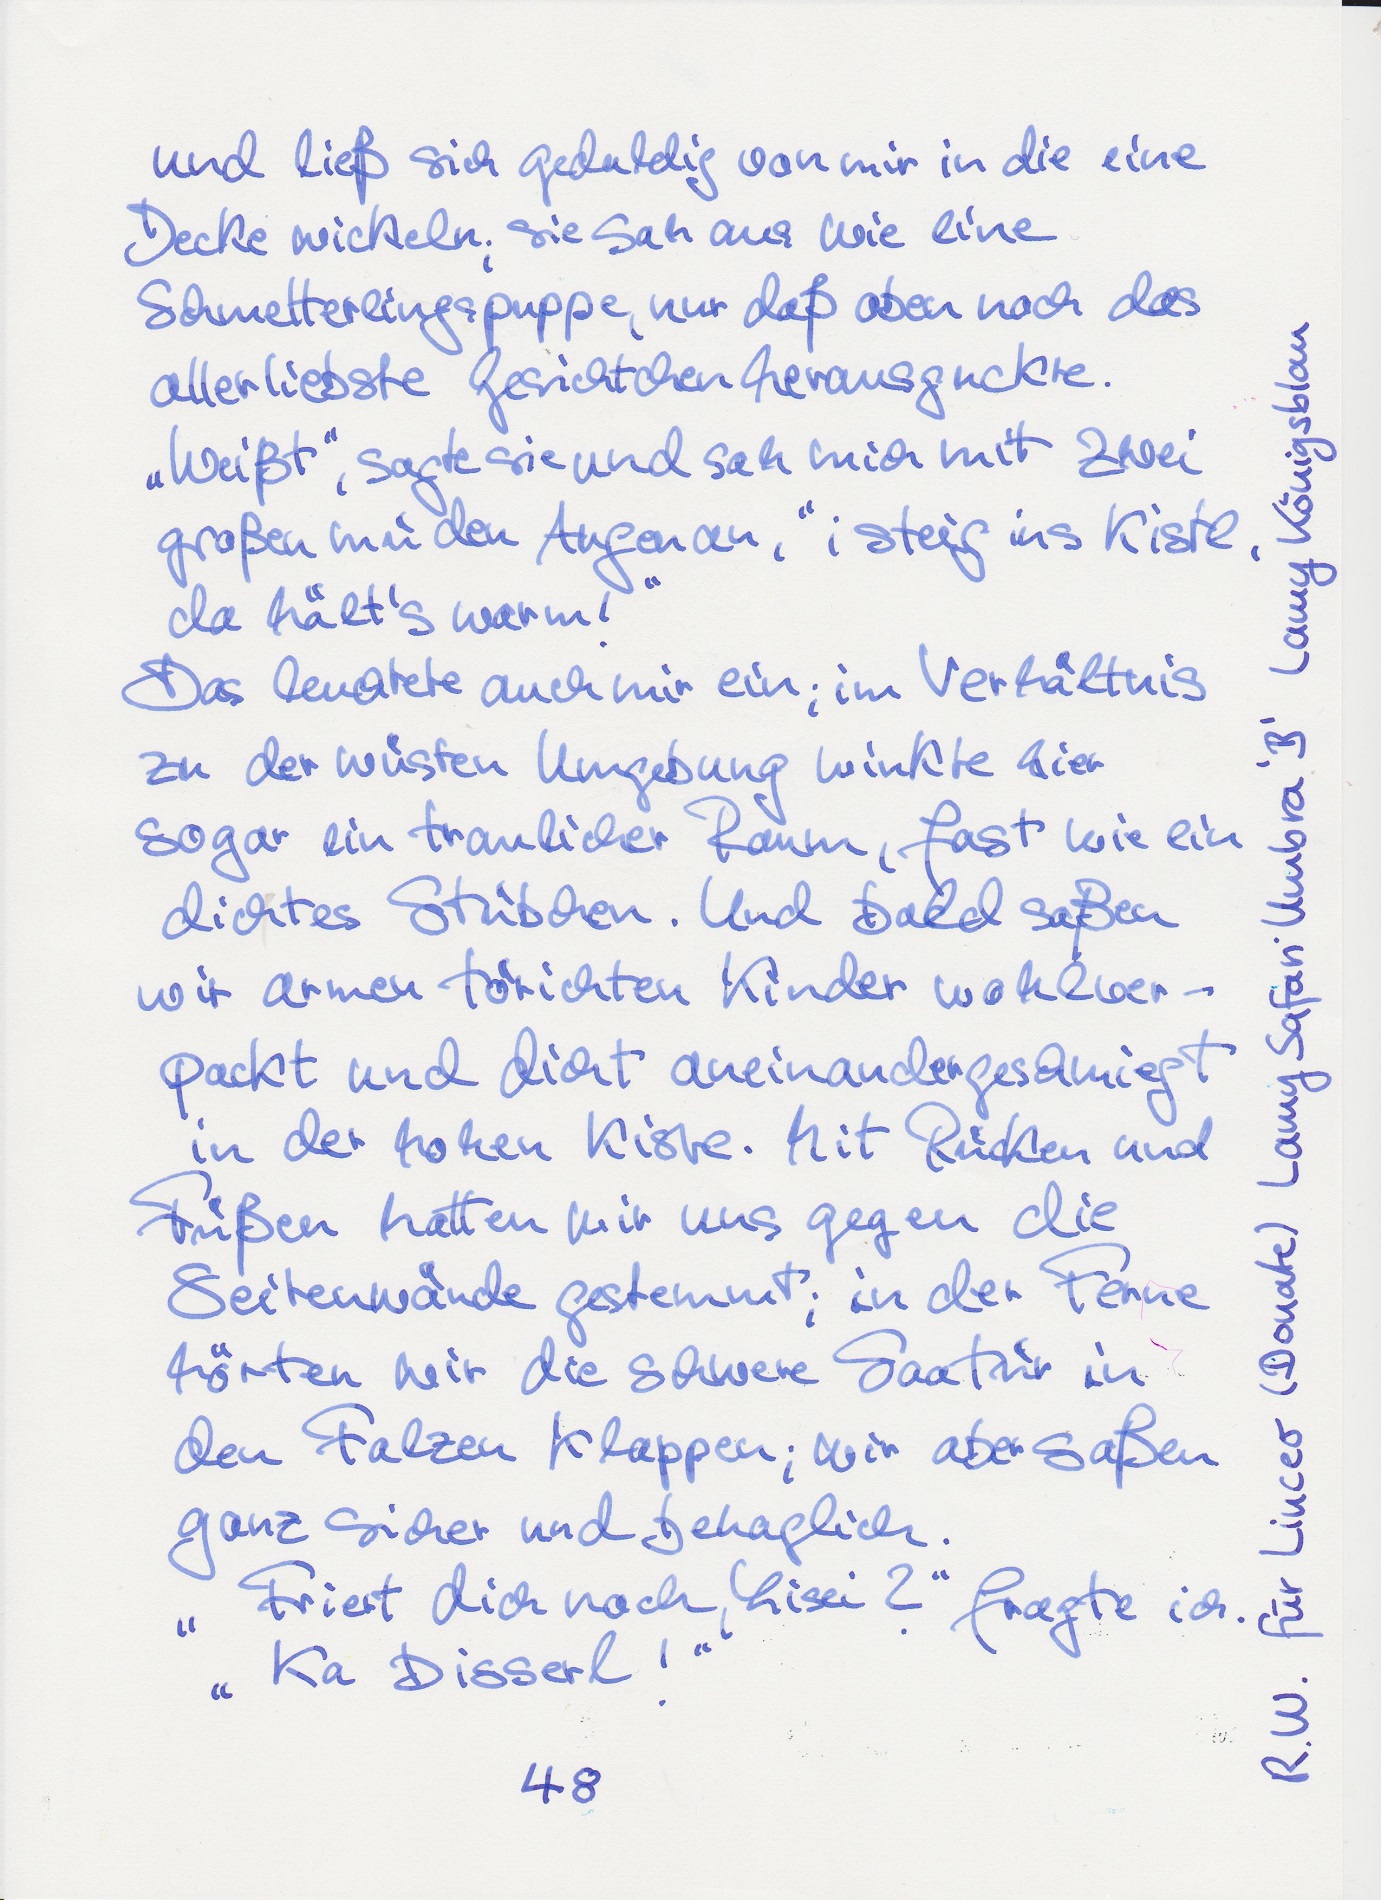 und ließ sich geduldig von mir in die eine
Decke wickeln; sie sah aus wie eine
Schmetterlingspuppe, nur daß oben noch das
allerliebste Gesichtchen herausguckte.
„Weißt“, sagte sie und sah mich mit zwei
großen müden Augen an, “i steig ins Kistl,
da hält's warm!“
Das leuchtete auch mir ein; im Verhältnis
zu der wüsten Umgebung winkte hier
sogar ein traulicher Raum, fast wie ein
dichtes Stübchen. Und bald saßen
wir armen törichten Kinder wohlver-
packt und dicht aneinandergeschmiegt
in der hohen Kiste. Mit Rücken und
Füßen hatten wir uns gegen die
Seitenwände gestemmt; in der Ferne
hörten wir die schwere Saaltür in
den Falzen klappen; wir aber saßen
ganz sicher und behaglich.
„Friert dich noch, Lisei?“ fragte ich.
„Ka bisserl!“
48
R.W. für Linceo (Donate) Lamy Safari Umbra 'B' Lamy Königsblau